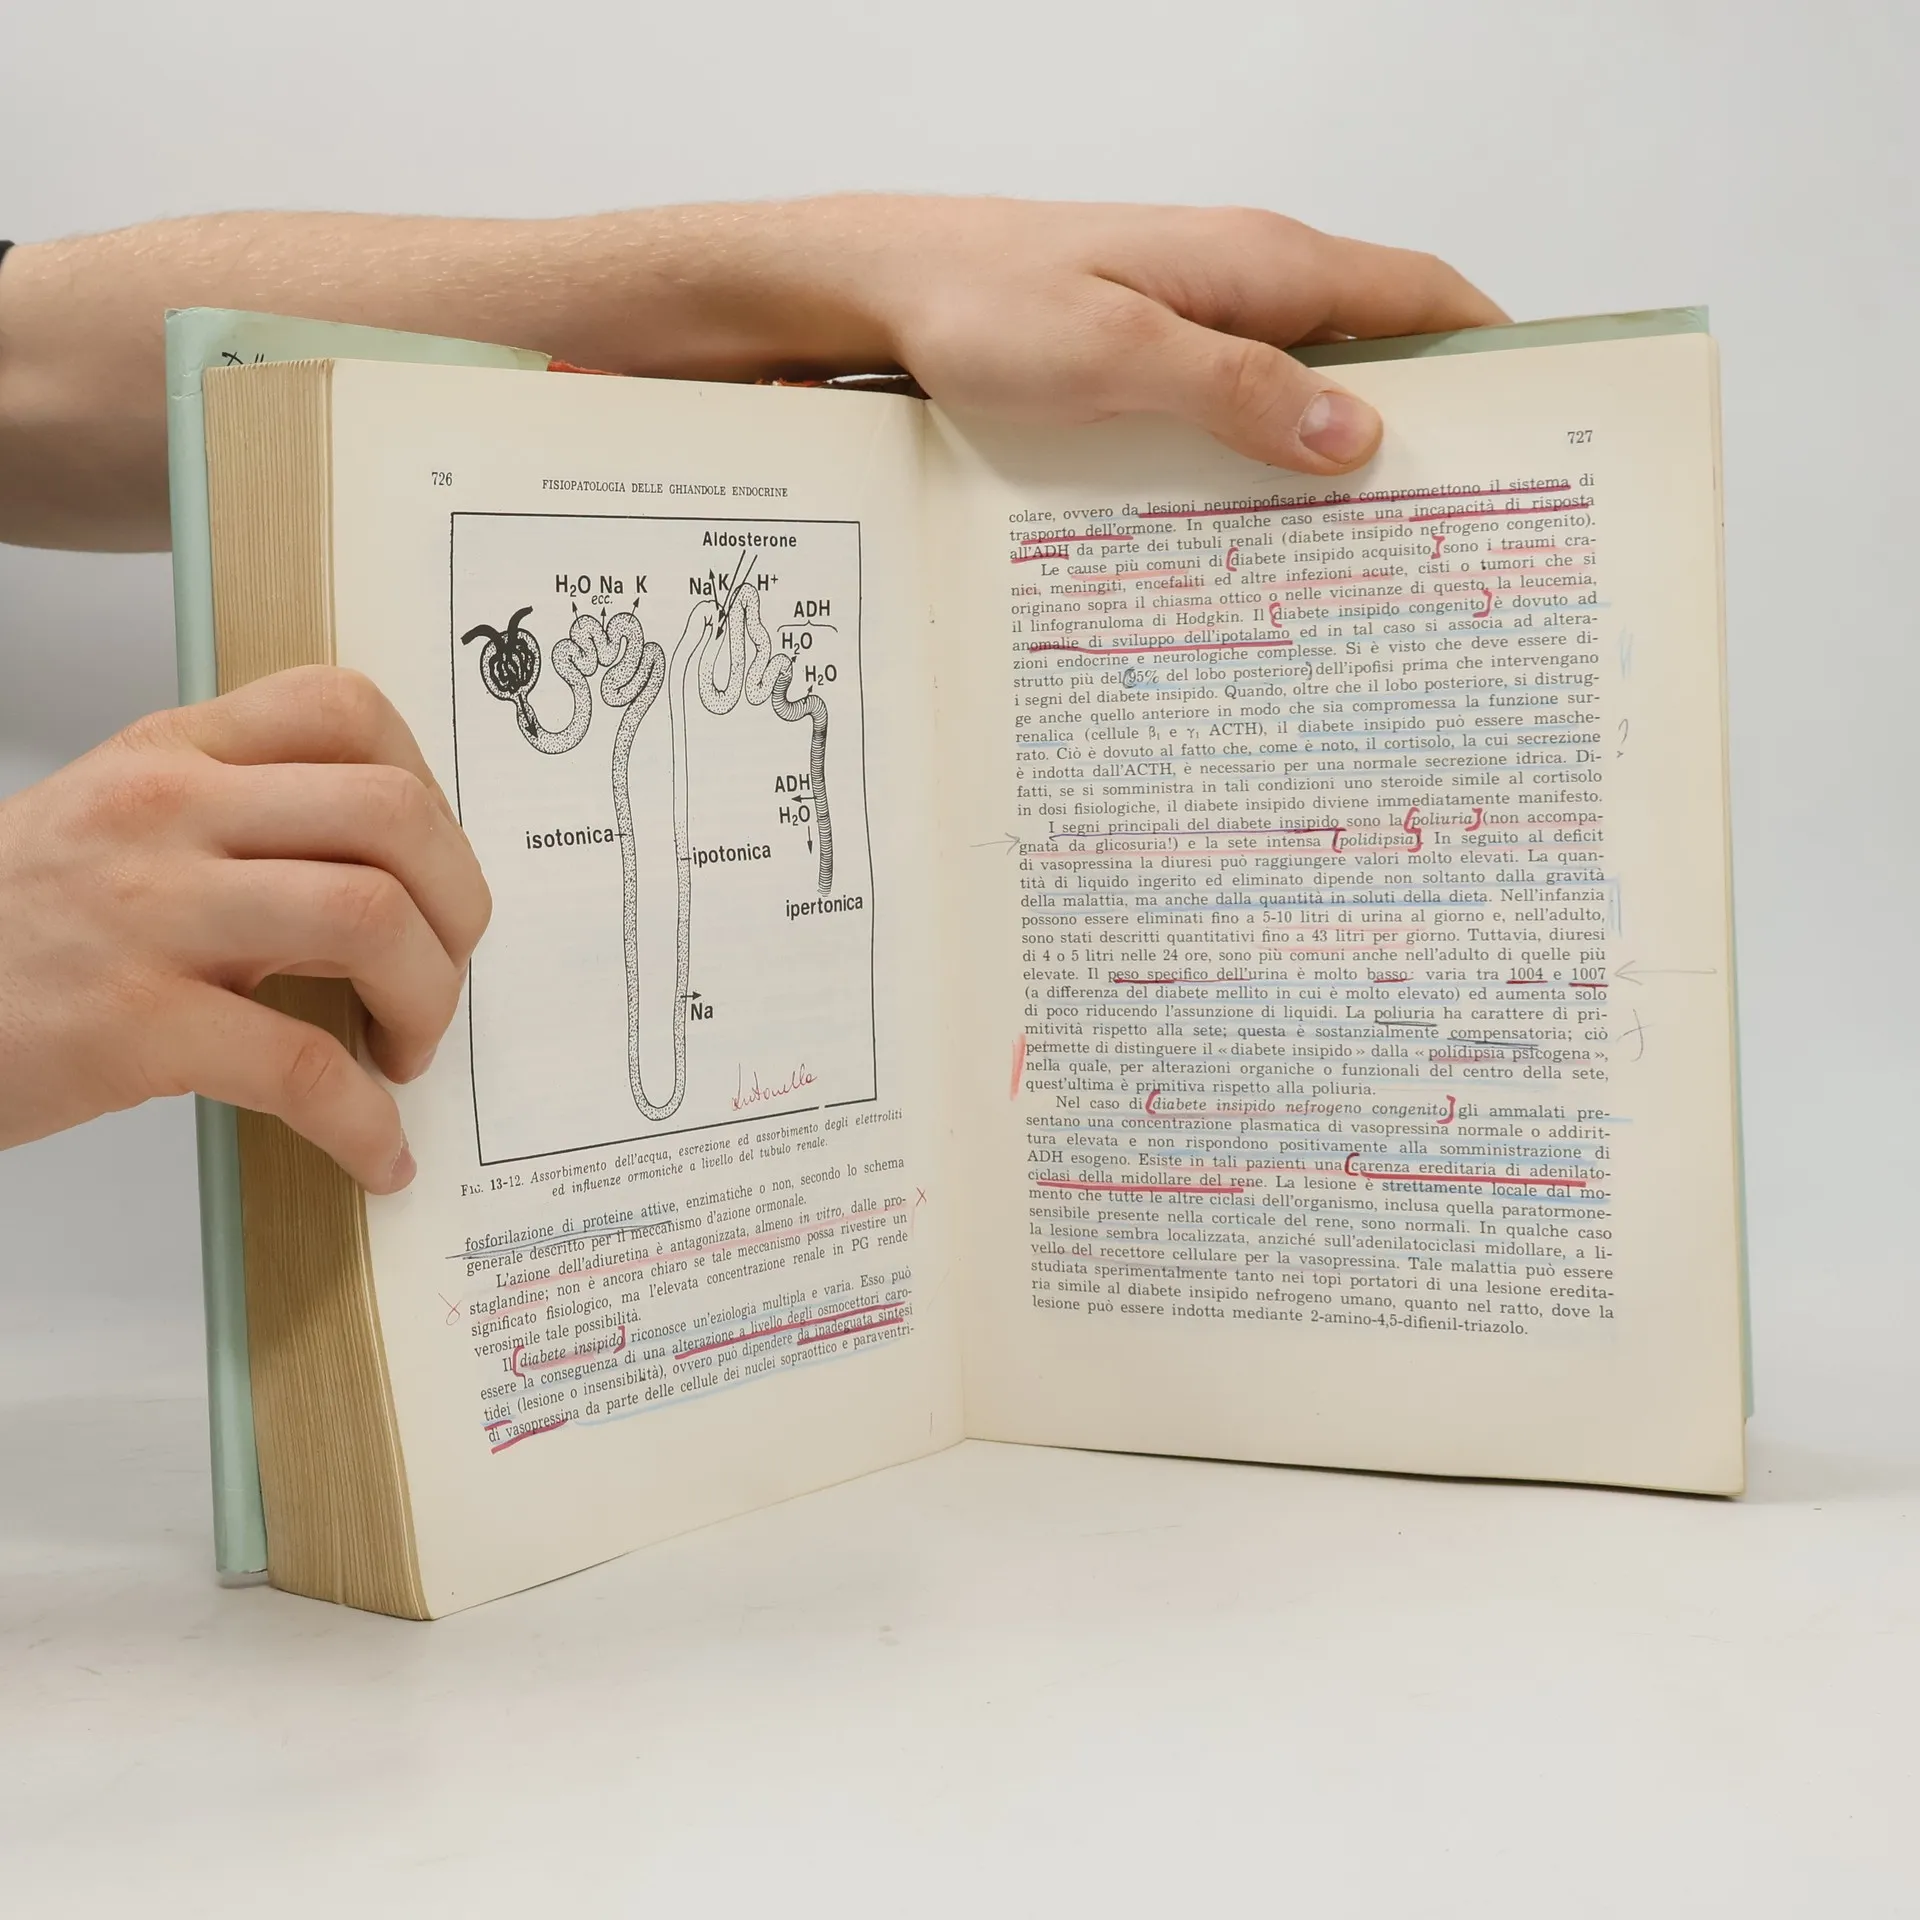 726
FISIOPATOLOGIA DELLE GHIANDOLE ENDOCRINE
Aldosterone
H₂O Na K
ecc.
Na K H⁺
ADH
H₂O
H₂O
ADH
H₂O
isotonica
ipotonica
ipertonica
Na
Antonella
FIG. 13-12. Assorbimento dell'acqua, escrezione ed assorbimento degli elettroliti
ed influenze ormoniche a livello del tubulo renale.
fosforilazione di proteine attive, enzimatiche o non, secondo lo schema
generale descritto per il meccanismo d'azione ormonale.
L'azione dell'adiuretina è antagonizzata, almeno in vitro, dalle pro-
staglandine; non è ancora chiaro se tale meccanismo possa rivestire un
significato fisiologico, ma l'elevata concentrazione renale in PG rende
verosimile tale possibilità.
Il diabete insipido riconosce un'eziologia multipla e varia. Esso può
essere la conseguenza di una alterazione a livello degli osmocettori caro-
tidei (lesione o insensibilità), ovvero può dipendere da inadeguata sintesi
di vasopressina da parte delle cellule dei nuclei sopraottico e paraventri-
727
colare, ovvero da lesioni neuroipofisarie che compromettono il sistema di
trasporto dell'ormone. In qualche caso esiste una incapacità di risposta
all'ADH da parte dei tubuli renali (diabete insipido nefrogeno congenito).
Le cause più comuni di diabete insipido acquisito, sono i traumi cra-
nici, meningiti, encefaliti ed altre infezioni acute, cisti o tumori che si
originano sopra il chiasma ottico o nelle vicinanze di questo, la leucemia,
il linfogranuloma di Hodgkin. Il diabete insipido congenito è dovuto ad
anomalie di sviluppo dell'ipotalamo ed in tal caso si associa ad altera-
zioni endocrine e neurologiche complesse. Si è visto che deve essere di-
strutto più del 95% del lobo posteriore dell'ipofisi prima che intervengano
i segni del diabete insipido. Quando, oltre che il lobo posteriore, si distrug-
ge anche quello anteriore in modo che sia compromessa la funzione sur-
renalica (cellule β₁ e γ₁ ACTH), il diabete insipido può essere masche-
rato. Ciò è dovuto al fatto che, come è noto, il cortisolo, la cui secrezione
è indotta dall'ACTH, è necessario per una normale secrezione idrica. Di-
fatti, se si somministra in tali condizioni uno steroide simile al cortisolo
in dosi fisiologiche, il diabete insipido diviene immediatamente manifesto.
I segni principali del diabete insipido sono la poliuria (non accompa-
gnata da glicosuria!) e la sete intensa (polidipsia). In seguito al deficit
di vasopressina la diuresi può raggiungere valori molto elevati. La quan-
tità di liquido ingerito ed eliminato dipende non soltanto dalla gravità
della malattia, ma anche dalla quantità in soluti della dieta. Nell'infanzia
possono essere eliminati fino a 5-10 litri di urina al giorno e, nell'adulto,
sono stati descritti quantitativi fino a 43 litri per giorno. Tuttavia, diuresi
di 4 o 5 litri nelle 24 ore, sono più comuni anche nell'adulto di quelle più
elevate. Il peso specifico dell'urina è molto basso: varia tra 1004 e 1007
(a differenza del diabete mellito in cui è molto elevato) ed aumenta solo
di poco riducendo l'assunzione di liquidi. La poliuria ha carattere di pri-
mitività rispetto alla sete; questa è sostanzialmente compensatoria; ciò
permette di distinguere il «diabete insipido» dalla «polidipsia psicogena»,
nella quale, per alterazioni organiche o funzionali del centro della sete,
quest'ultima è primitiva rispetto alla poliuria.
Nel caso di diabete insipido nefrogeno congenito gli ammalati pre-
sentano una concentrazione plasmatica di vasopressina normale o addirit-
tura elevata e non rispondono positivamente alla somministrazione di
ADH esogeno. Esiste in tali pazienti una carenza ereditaria di adenilato-
ciclasi della midollare del rene. La lesione è strettamente locale dal mo-
mento che tutte le altre ciclasi dell'organismo, inclusa quella paratormone-
sensibile presente nella corticale del rene, sono normali. In qualche caso
la lesione sembra localizzata, anziché sull'adenilatociclasi midollare, a li-
vello del recettore cellulare per la vasopressina. Tale malattia può essere
studiata sperimentalmente tanto nei topi portatori di una lesione eredita-
ria simile al diabete insipido nefrogeno umano, quanto nel ratto, dove la
lesione può essere indotta mediante 2-amino-4,5-difienil-triazolo.